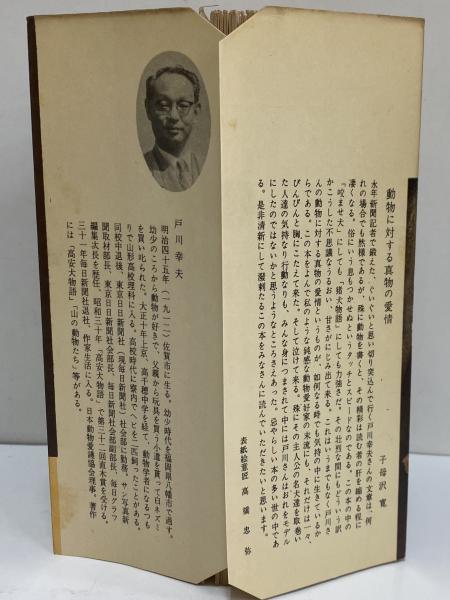 動物に対する真物の愛情
子母沢 寛
永年新聞記者で鍛えた、ぐいぐいと思い切り突込んで行く戸川幸夫さんの文章は、何
れの場合でも然様であるが、殊に動物を書くと、その精彩は読む者の肝を縮める程に
凄くなる。俗にいう息もつかせぬというタッチとスピードなのである。この本の中の
「咬ませ犬」にしても「猪犬物語」にしても力強さと、その壮烈な闘にもどういう訳
かこうした不思議なうるおい、甘さがにじみ出て来る。これはいうまでもなく戸川さ
んの動物に対する真物の愛情というものが、如何なる時でも気持の中に生きているか
らである。この本をよんで私のような鈍感な動物愛好家の末流にも、それだけは一々、
ぴんぴんと胸にこたえて来る。そして泣けて来る。殊にその主人公の名犬達を取巻い
た人達の気持なり行動なりも、みんな身につまされて中には戸川さんはおれをモデル
にしたのではないかと思うようなところさえあった。忌やらしい本の多い世の中であ
る。是非清新にして溌剌たるこの本をみなさんに読んでいただきたいと思います。
表紙絵意匠 高橋忠弥
戸川幸夫
明治四十五年（一九一二）佐賀市に生る。幼少時代を福岡県八幡市で過す。
幼少のころから動物が好きで、父親から玩具を買う小遣を貰って白ネズミ
を買い叱られた。大正十年上京、高千穂中学を経て、動物学者になるつも
りで山形高校理科に入る。高校時代に寮内で、ヘビを二匹飼ったことがある。
同校中退後、東京日日新聞社（現毎日新聞社）社会部に勤務、サン写真新
聞取材部長、東京日日新聞社社会部長、毎日新聞社会部副部長、毎日グラフ
編集次長を歴任、昭和三十年「高安犬物語」で第三十二回直木賞を受ける。
三十一年毎日新聞社退社、作家生活に入る。日本動物愛護協会理事。著作
には「高安犬物語」「山の動物たち」等がある。